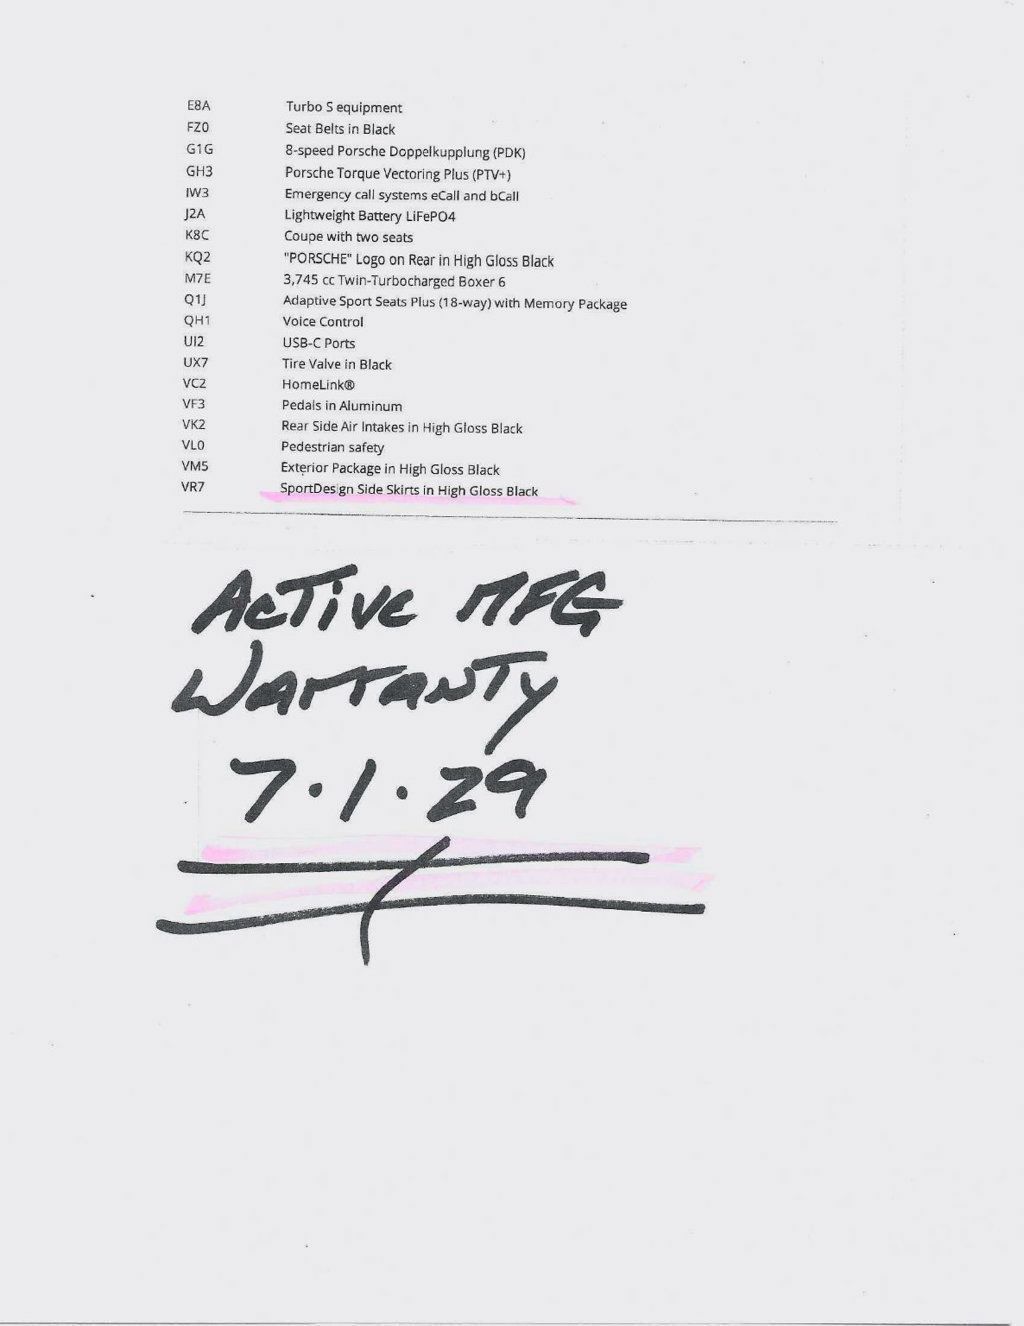 E8A Turbo S equipment
FZ0 Seat Belts in Black
G1G 8-speed Porsche Doppelkupplung (PDK)
GH3 Porsche Torque Vectoring Plus (PTV+)
IW3 Emergency call systems eCall and bCall
J2A Lightweight Battery LiFePO4
K8C Coupe with two seats
KQ2 "PORSCHE" Logo on Rear in High Gloss Black
M7E 3,745 cc Twin-Turbocharged Boxer 6
Q1J Adaptive Sport Seats Plus (18-way) with Memory Package
QH1 Voice Control
UI2 USB-C Ports
UX7 Tire Valve in Black
VC2 HomeLink®
VF3 Pedals in Aluminum
VK2 Rear Side Air Intakes in High Gloss Black
VL0 Pedestrian safety
VM5 Exterior Package in High Gloss Black
VR7 SportDesign Side Skirts in High Gloss Black
Active MFG
Warranty
7.1.29